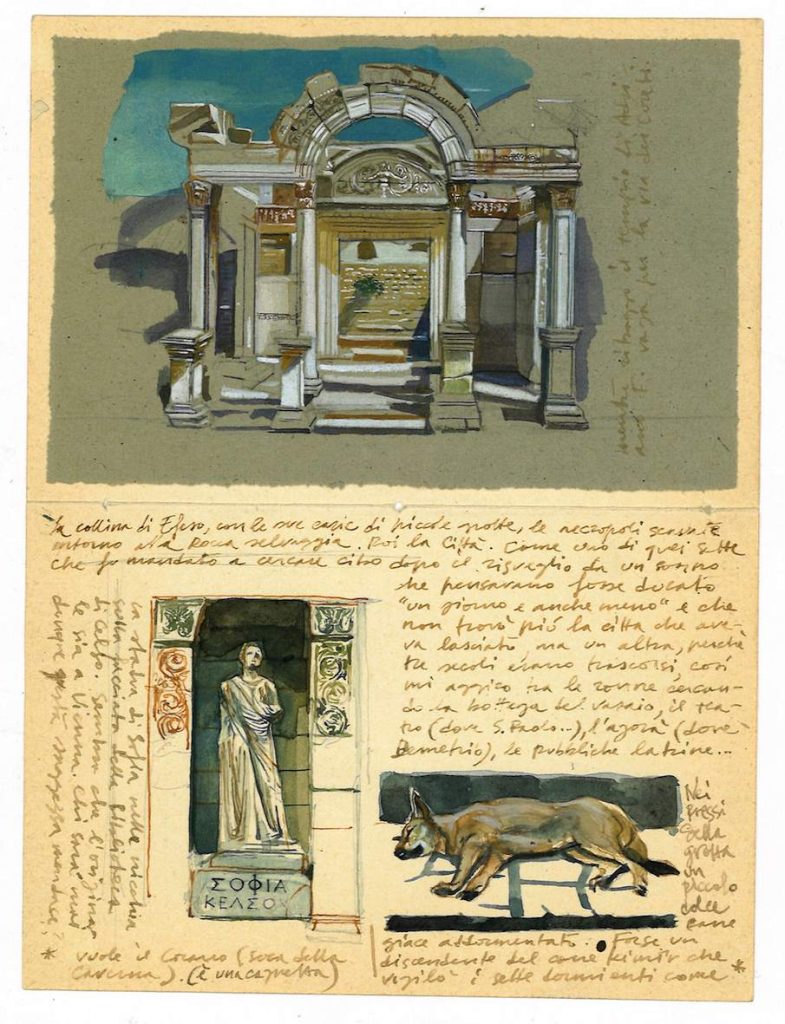 mentre il tempio di Adri-
ano F. vaga per la via dei Cureti.
La collina di Efeso, con le sue di piccole grotte, le necropoli scavate
intorno alla Rocca selvaggia. Poi la Città. Come uno di quei sette
che fu mandato a cercare cibo dopo il risveglio da un sonno
che pensavano fosse durato
"un giorno e anche meno" e che
non trovò più la città che ave-
va lasciato, ma un altra, perché
tre secoli erano trascorsi, così
mi aggiro tra le rovine cercan-
do la bottega del vasaio, il tea-
tro (dove S. Paolo...), l'agorà (dove
Demetrio), le pubbliche latrine...
La statua di Sofia nella nicchia
sulla facciata della Biblioteca
di Celso. Sembra che l'origina-
le sia a Vienna. Chi sarà mai
dunque questa saggezza mendace?
ΣΟΦΙΑ
ΚΕΛΣΟΥ
Nei
pressi
della
grotta
un
piccolo
dolce
cane
giace addormentato. Forse un
discendente del cane Kimir che
vigilò i sette dormienti come *
* vuole il Corano (Sura della
Caverna). (è una cagnetta)